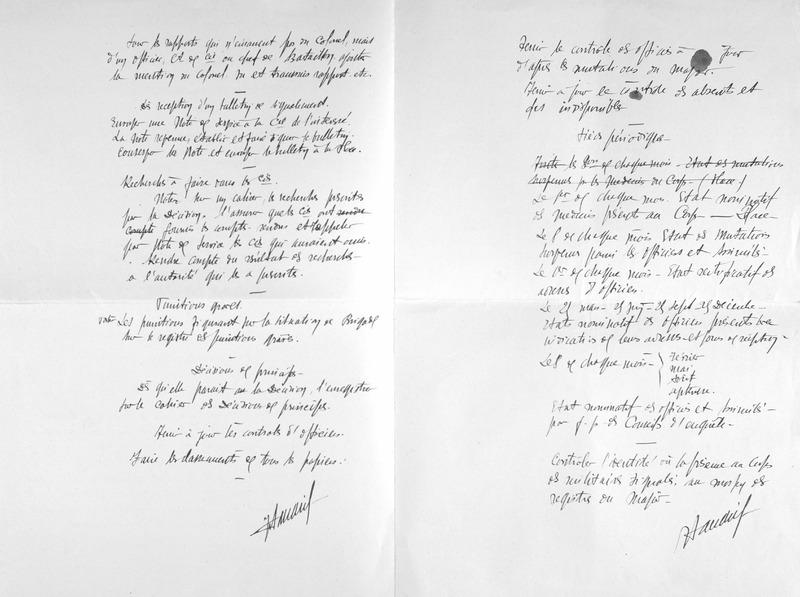 tour les rapports qui n'émanent pas du Colonel, mais
d'un officier, Ct de Cie ou chef de bataillon ajouter
la mention du Colonel Vu et transmis rapport etc.
Dès réception d'un bulletin de signalement.
Envoyer une Note de service à la Cie de l'intéressé.
La Note revenue, établir et faire signer le bulletin.
Conserver la Note et envoyer le bulletin à la Place.
Recherches à faire dans les Cies.
Noter sur un cahier, les recherches prescrites
par la Décision. S'assurer que les Cies ont
compte fourni les compte rendus et rappeler
par Note de service les Cies qui auraient omis.
Rendre compte du résultat des recherches
à l'autorité qui les a prescrites.
Punitions graves.
Les punitions figurant sur la situation de Brigade
sur le registre des punitions graves.
Décisions de principe
Dès qu'elle paraît au la Décision, l'enregistrer
sur le cahier des Décisions de principes.
Tenir à jour les controles d'officiers.
Faire les classements de tous les papiers.
Tenir le controle des officiers à jour
d'après les mutations du major.
Tenir à jour le controle des absents et
des indisponibles
Pièces périodiques
Le 1er de chaque mois. Etat nominatif
des médecins présents au Corps — Place
Le 8 de chaque mois Etat des Mutations
survenues parmi les officiers et Assimilés
Le 1er de chaque mois - Etat rectificatif des
adresses d'officiers.
Le 25 mars - 25 juin - 25 sept. 25 Décembre -
Etats nominatifs des officiers présents avec
indication de leurs adresses et jours de réception -
Le 8 de chaque mois - Février
mai
Août
Etat nominatif des officiers et Assimilés
par f. p. des Conseils d'enquête -
Controler l'identité ou la présence au Corps
des militaires signalés, au moyen des
registres du Major -